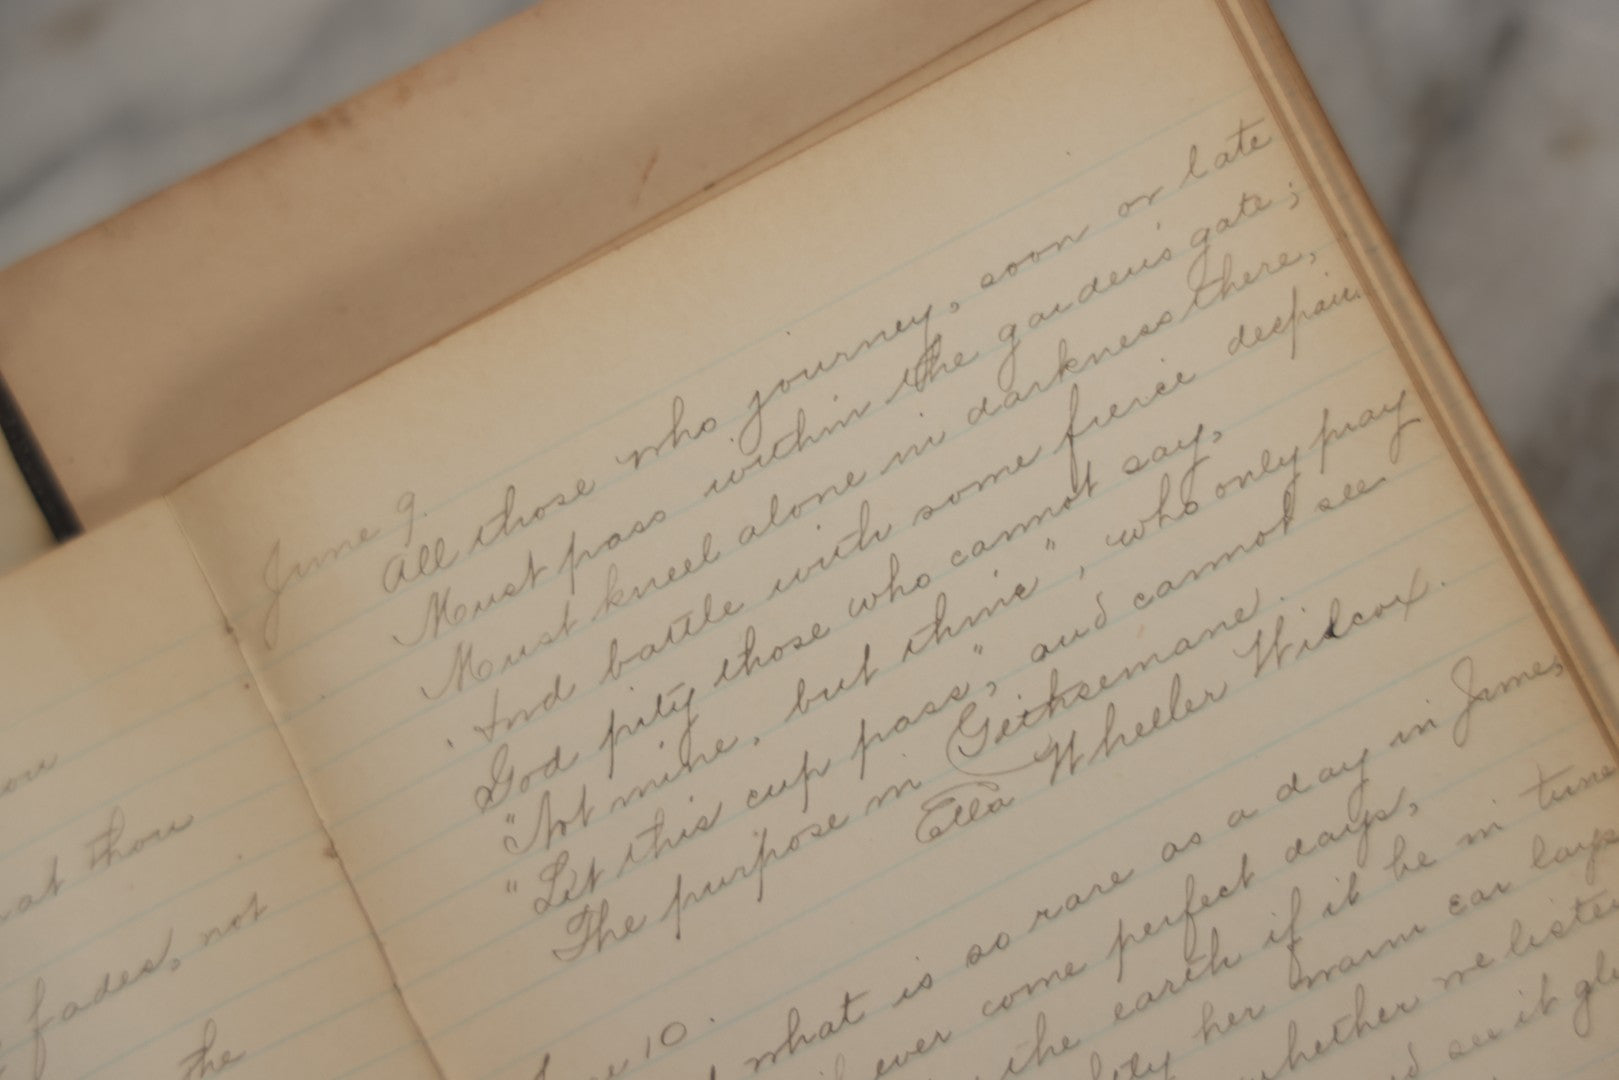 ou
at thou
fades, not
the
June 9.
All those who journey, soon or late
Must pass within the garden's gate;
Must kneel alone in darkness there,
And battle with some fierce despair.
God pity those who cannot say,
"Not mine, but thine", who only pray
"Let this cup pass", and cannot see
The purpose in Gethsemane.
Ella Wheeler Wilcox.
10.
what is so rare as a day in June,
ever come perfect days,
the earth if it be in tune
her warm ear lays
whether we listen
see it gl